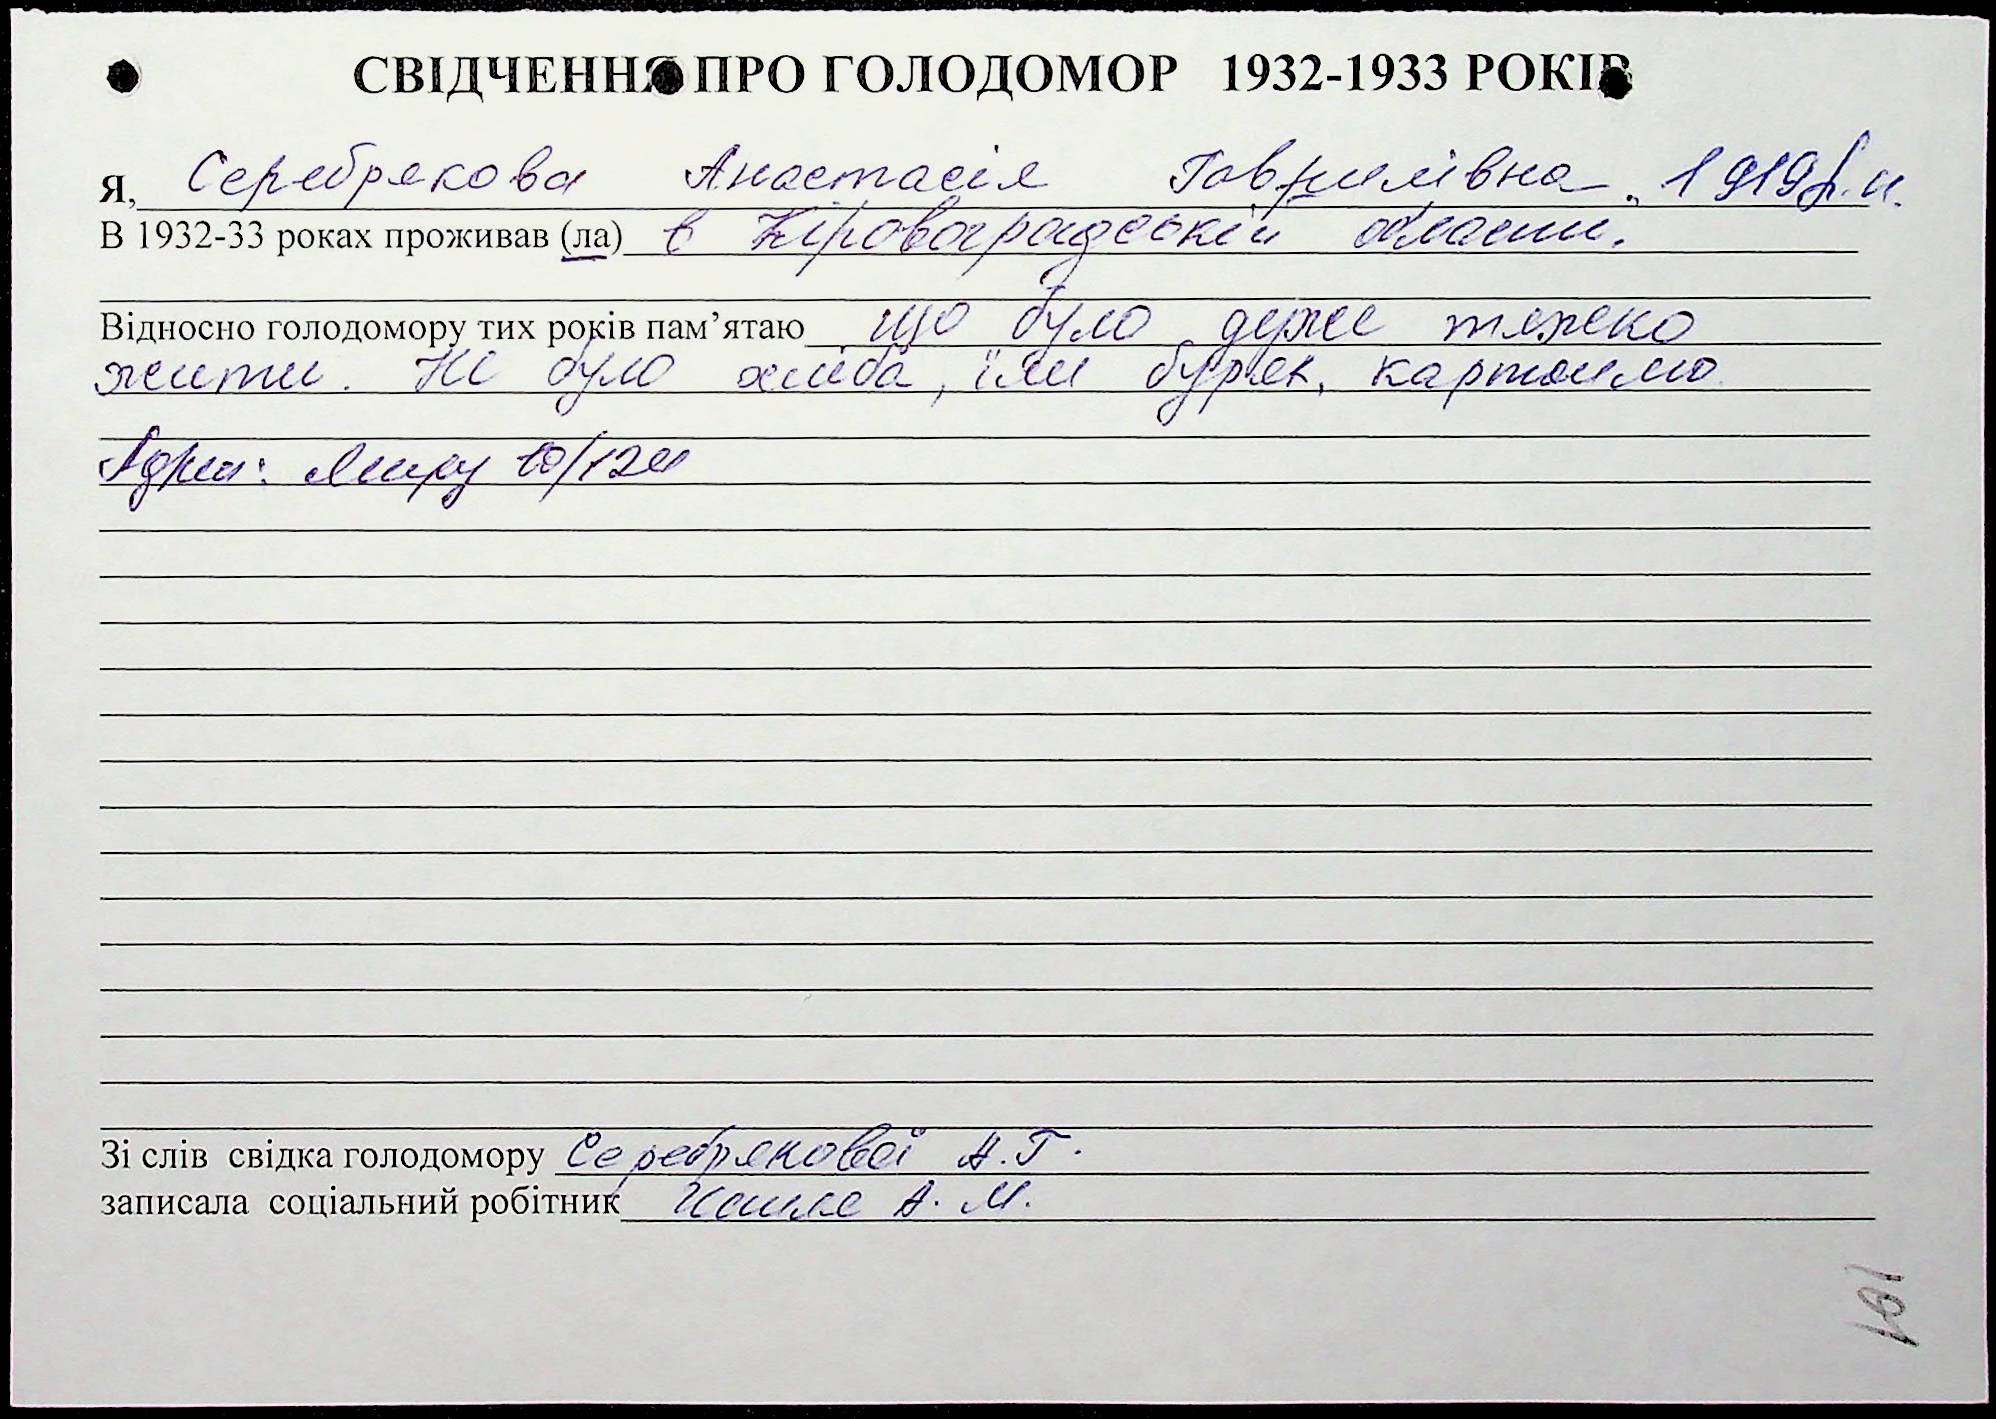 СВІДЧЕННЯ ПРО ГОЛОДОМОР 1932-1933 РОКІВ
Я, Серебрякова Анастасія Гаврилівна, 1919 р.н.
В 1932-33 роках проживав (ла) в Кіровоградській області.
Відносно голодомору тих років пам’ятаю що було дуже тяжко
жити. Не було хліба, їли буряк, картоплю
Адреса: Миру
Зі слів свідка голодомору Серебрякової А.Г.
записала соціальний робітник А. М.